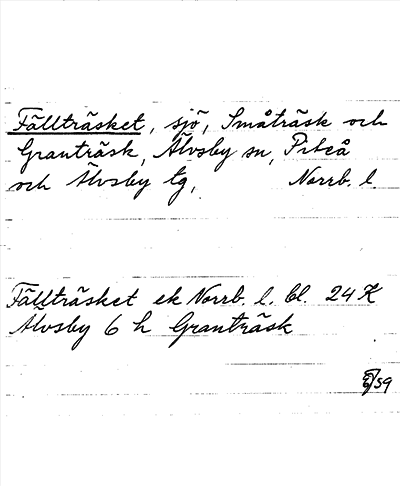 Fällträsket, sjö, Småträsk och
Granträsk, Älvsby sn, Piteå
och Älvsby tg, Norrb. l.
Fällträsket ek Norrb. l. bl. 24 K
Älvsby 6 h Granträsk
/59